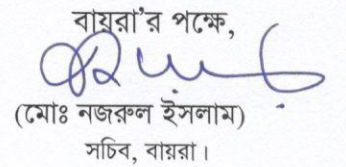 বায়রা'র পক্ষে,
(মোঃ নজরুল ইসলাম)
সচিব, বায়রা।